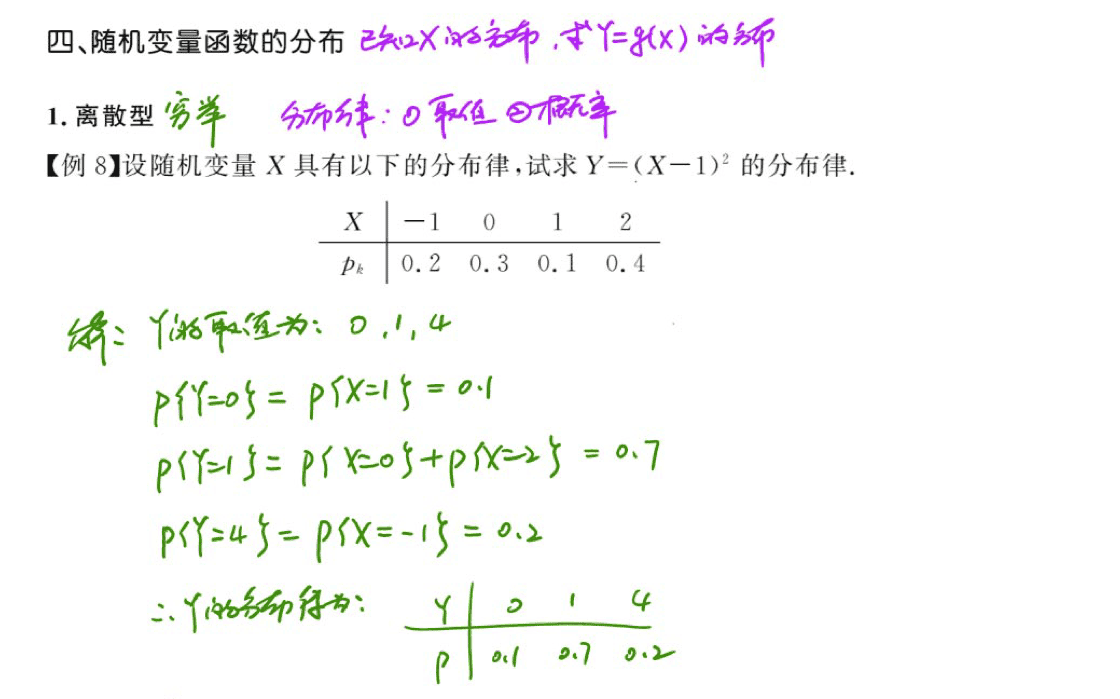 四、随机变量函数的分布 已知X的分布,求Y=g(X)的分布
1. 离散型 穷举 分布律:①取值 ②概率
【例 8】设随机变量 X 具有以下的分布律,试求 Y=(X-1)² 的分布律.
X -1 0 1 2
pₖ 0.2 0.3 0.1 0.4
解: Y的取值为: 0,1,4
P{Y=0}= P{X=1}=0.1
P{Y=1}= P{X=0}+P{X=2} = 0.7
P{Y=4}= P{X=-1}=0.2
∴Y的分布律为: Y 0 1 4
P 0.1 0.7 0.2